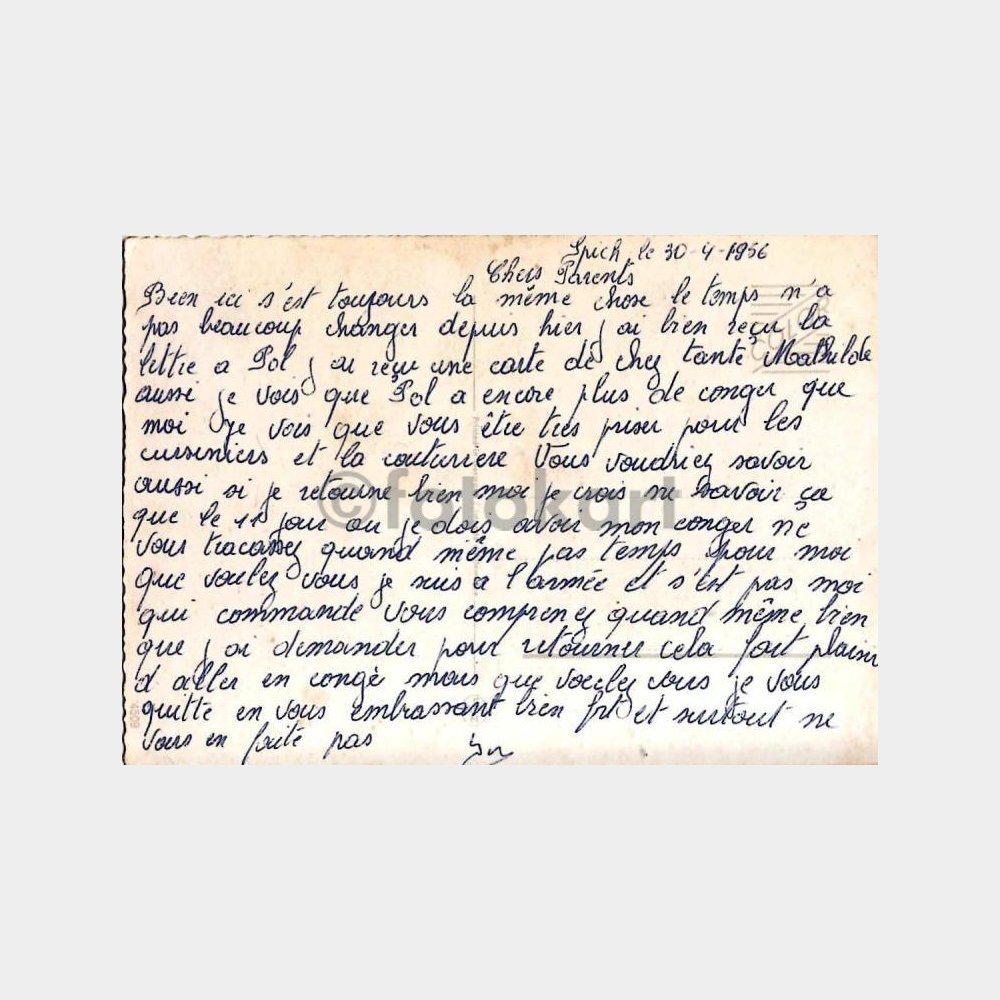 Spich, le 30-4-1956
Chers Parents
Bien ici s'est toujours la même chose le temps n'a
pas beaucoup changer depuis hier j ai bien reçu la
lettre a Pol j ai reçu une carte de chez tante Mathilde
aussi je vois que Pol a encore plus de conger que
moi je vois que vous être tres priser pour les
cuisiniers et la couturiere Vous voudriez savoir
aussi si je retourne bien moi je crois ne savoir ça
que le 11 jour ou je dois avoir mon conger ne
vous tracassez quand même pas temps pour moi
que voulez vous je suis a l'armée et s'est pas moi
qui commande vous comprenez quand même bien
que j ai demander pour retourner cela fait plaisir
d aller en congé mais que voulez vous je vous
quitte en vous embrassant bien frt et surtout ne
vous en faite pas
©fotokart
COLOR
4509